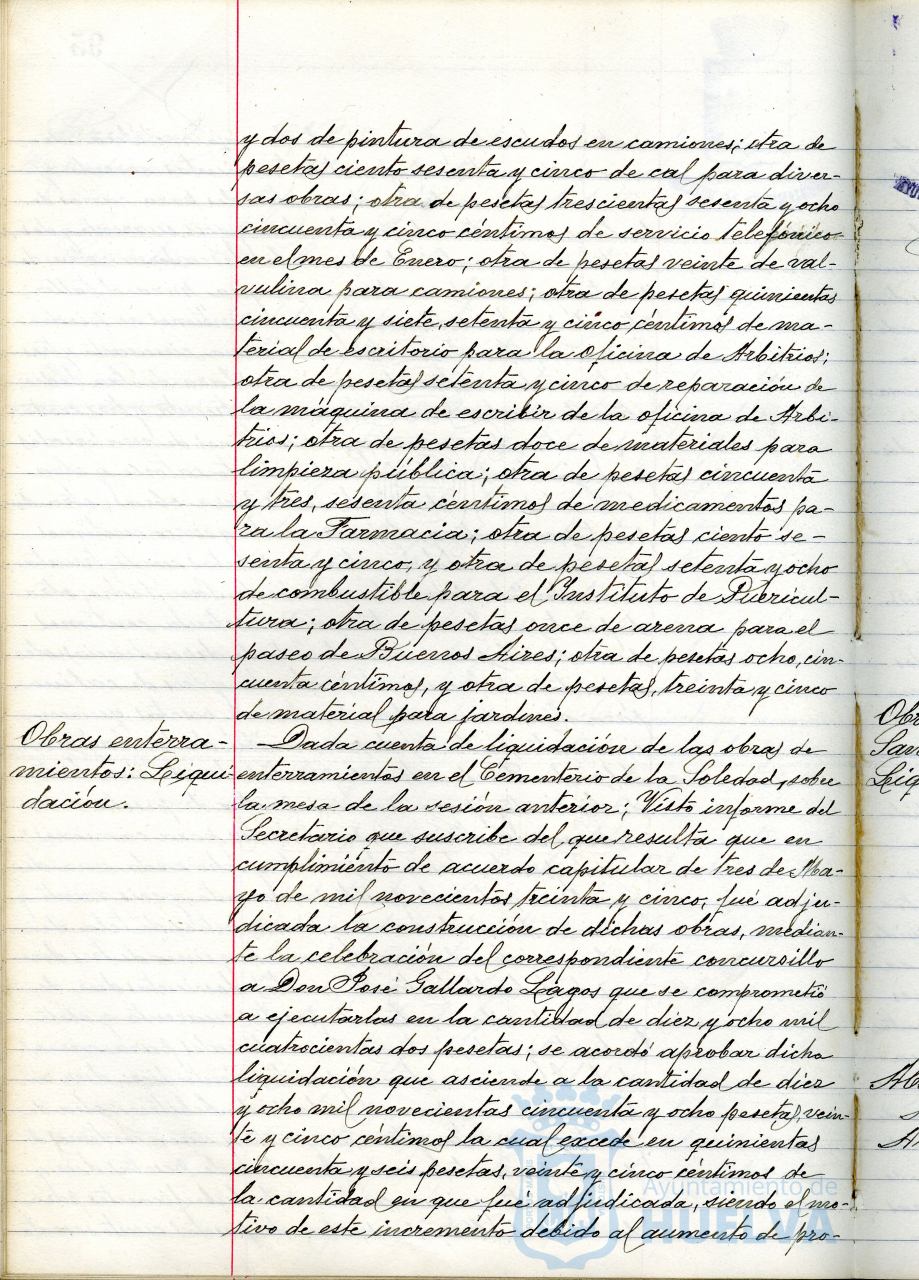 y dos de pintura de escudos en camiones; otra de
pesetas ciento sesenta y cinco de cal para diver-
sas obras; otra de pesetas trescientas sesenta y ocho
cincuenta y cinco céntimos de servicio telefónico
en el mes de Enero; otra de pesetas veinte de val-
vulina para camiones; otra de pesetas quinientas
cincuenta y siete, setenta y cinco céntimos de ma-
terial de escritorio para la oficina de Arbitrios;
otra de pesetas setenta y cinco de reparación de
la máquina de escribir de la oficina de Arbi-
trios; otra de pesetas doce de materiales para
limpieza pública; otra de pesetas cincuenta
y tres, sesenta céntimos de medicamentos pa-
ra la Farmacia; otra de pesetas ciento se-
senta y cinco, y otra de pesetas setenta y ocho
de combustible para el Instituto de Puericul-
tura; otra de pesetas once de arena para el
paseo de Buenos Aires; otra de pesetas ocho, cin-
cuenta céntimos, y otra de pesetas, treinta y cinco
de material para jardines.
Obras enterra-
mientos: Liqui-
dación.
Dada cuenta de liquidación de las obras de
enterramientos en el Cementerio de la Soledad, sobre
la mesa de la sesión anterior; Visto informe del
Secretario que suscribe del que resulta que en
cumplimiento de acuerdo capitular de tres de Ma-
yo de mil novecientos treinta y cinco, fué adju-
dicada la construcción de dichas obras, median-
te la celebración del correspondiente concursillo
a Don José Gallardo Lagos que se comprometió
a ejecutarlas en la cantidad de diez y ocho mil
cuatrocientas dos pesetas; se acordó aprobar dicha
liquidación que asciende a la cantidad de diez
y ocho mil novecientas cincuenta y ocho pesetas, vein-
te y cinco céntimos la cual excede en quinientas
cincuenta y seis pesetas, veinte y cinco céntimos de
la cantidad en que fué adjudicada, siendo el mo-
tivo de este incremento debido al aumento de pro-
Ayuntamiento de
HUELVA